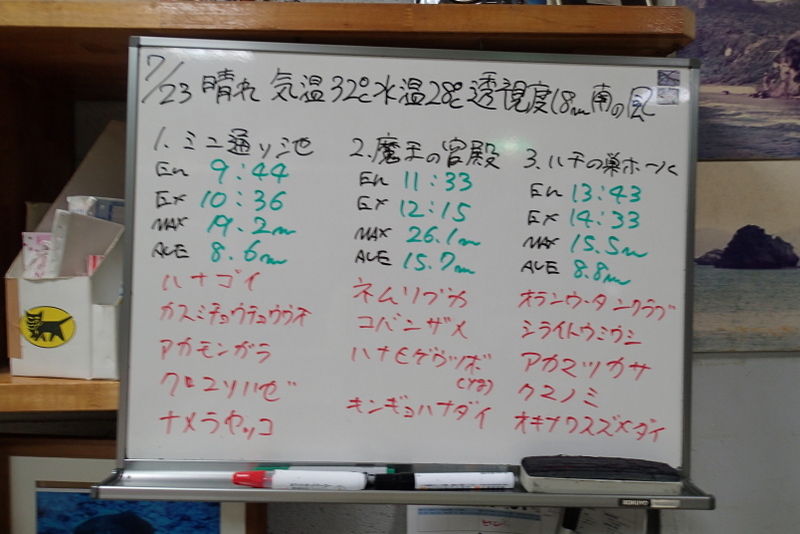 7/23 晴れ 気温32℃水温28℃透視度18m南の風
1. ミニ通り池
En 9:44
EX 10:36
MAX 19.2m
AVE 8.6m
ハナゴイ
カスミチョウチョウウオ
アカモンガラ
クロユリハゼ
ナメラヤッコ
2. 魔王の宮殿
En 11:33
EX 12:15
MAX 26.1m
AVE 15.7m
ネムリブカ
コバンザメ
ハナヒゲウツボ
(yg)
キンギョハナダイ
3. ハチの巣ホール
En 13:43
EX 14:33
MAX 15.5m
AVE 8.8m
オランウータンクラブ
シライトウミウシ
アカマツカサ
クマノミ
オキナワスズメダイ